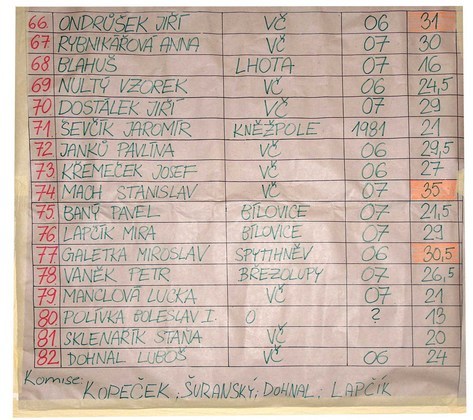 66. ONDRŮŠEK JIŘÍ VČ 06 31
67. RYBNIKÁŘOVÁ ANNA VČ 07 30
68 BLAHUŠ LHOTA 07 16
69 NULTÝ VZOREK VČ 06 24,5
70 DOSTÁLEK JIŘÍ VČ 07 29
71 ŠEVČÍK JAROMÍR KNĚŽPOLE 1981 21
72 JANKŮ PAVLÍNA VČ 06 29,5
73 KŘEMEČEK JOSEF VČ 06 27
74. MACH STANISLAV VČ 07 35
75. BANÝ PAVEL BÍLOVICE 07 21,5
76. LAPČÍK MIRA BÍLOVICE 07 29
77 GALETKA MIROSLAV SPYTIHNĚV 06 30,5
78 VANĚK PETR BŘEZOLUPY 07 26,5
79 MANCLOVÁ LUCKA VČ 07 21
80. POLÍVKA BOLESLAV I. O ? 13
81 SKLENAŘÍK STAŇA VČ 20
82 DOHNAL LUBOŠ VČ 06 24
Komise: KOPEČEK, ŠURANSKÝ, DOHNAL, LAPČÍK